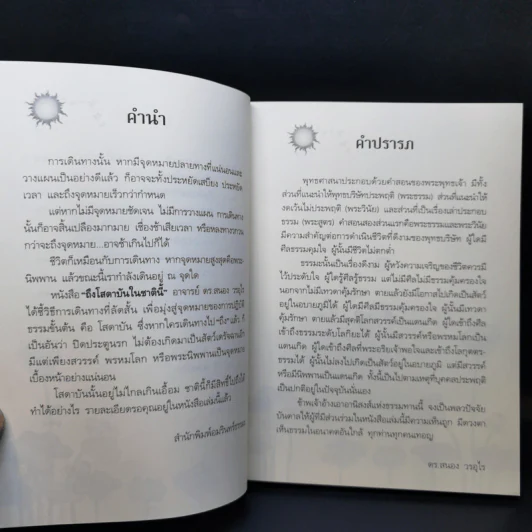 คำนำ
การเดินทางนั้น หากมีจุดหมายปลายทางที่แน่นอนและ
วางแผนเป็นอย่างดีแล้ว ก็อาจจะทั้งประหยัดเสบียง ประหยัด
เวลา และถึงจุดหมายเร็วกว่ากำหนด
แต่หากไม่มีจุดหมายชัดเจน ไม่มีการวางแผน การเดินทาง
นั้นก็อาจสิ้นเปลืองมากมาย เชื่องช้าเสียเวลา หรือหลงทางวกวน
กว่าจะถึงจุดหมาย...อาจช้าเกินไปก็ได้
ชีวิตก็เหมือนกับการเดินทาง หากจุดหมายสูงสุดคือพระ
นิพพาน แล้วขณะนี้เรากำลังเดินอยู่ ณ จุดใด
หนังสือ "ถึงโสดาบันในชาตินี้" อาจารย์ ดร.สนอง วรอุไร
ได้ชี้วิธีการเดินทางที่ลัดสั้น เพื่อมุ่งสู่จุดหมายของการปฏิบัติ
ธรรมขั้นต้น คือ โสดาบัน ซึ่งหากใครเดินทางไป "ถึง" แล้ว ก็
เป็นอันว่า ปิดประตูนรก ไม่ต้องเกิดมาเป็นสัตว์เดรัจฉานอีก
มีแต่เพียงสวรรค์ พรหมโลก หรือพระนิพพานเป็นจุดหมาย
เบื้องหน้าอย่างแน่นอน
โสดาบันนั้นอยู่ไม่ไกลเกินเอื้อม ชาตินี้ก็มีสิทธิ์ไปถึงได้
ทำได้อย่างไร รายละเอียดรอคุณอยู่ในหนังสือเล่มนี้แล้ว
สำนักพิมพ์อมรินทร์ธรรมะ
คำปรารภ
พุทธศาสนาประกอบด้วยคำสอนของพระพุทธเจ้า มีทั้ง
ส่วนที่แนะนำให้พุทธบริษัทประพฤติ (พระธรรม) ส่วนที่แนะนำให้
งดเว้นไม่ประพฤติ (พระวินัย) และส่วนที่เป็นเรื่องเล่าประกอบ
ธรรม (พระสูตร) คำสอนสองส่วนแรกคือพระธรรมและพระวินัย
มีความสำคัญต่อการดำเนินชีวิตที่ดีงามของพุทธบริษัท ผู้ใดมี
ศีลธรรมคุมใจ ผู้นั้นมีชีวิตไม่ตกต่ำ
ธรรมะนั้นเป็นเรื่องดีงาม ผู้หวังความเจริญของชีวิตควรมี
ไว้ประดับใจ ผู้ใดรู้ศีลรู้ธรรม แต่ไม่มีศีลไม่มีธรรมคุ้มครองใจ
นอกจากไม่มีเทวดาคุ้มรักษา ตายแล้วยังมีโอกาสไปเกิดเป็นสัตว์
อยู่ในอบายภูมิได้ ผู้ใดมีศีลมีธรรมคุ้มครองใจ ผู้นั้นมีเทวดา
คุ้มรักษา ตายแล้วมีสุคติโลกสวรรค์เป็นแดนเกิด ผู้ใดเข้าถึงศีล
เข้าถึงธรรมระดับโลกิยะได้ ผู้นั้นมีสวรรค์หรือพรหมโลกเป็น
แดนเกิด ผู้ใดเข้าถึงศีลที่พระอริยเจ้าพอใจและเข้าถึงโลกุตตร-
ธรรมได้ ผู้นั้นไม่ลงไปเกิดเป็นสัตว์อยู่ในอบายภูมิ แต่มีสวรรค์
หรือมีนิพพานเป็นแดนเกิด ทั้งนี้เป็นไปตามเหตุที่บุคคลประพฤติ
เป็นปกติอยู่ในปัจจุบันนั่นเอง
ข้าพเจ้าอ้างเอาอานิสงส์แห่งธรรมทานนี้ จงเป็นพลวปัจจัย
บันดาลให้ผู้ที่มีส่วนร่วมในหนังสือเล่มนี้มีความเห็นถูก มีดวงตา
เห็นธรรมในอนาคตอันใกล้ ทุกท่านทุกคนเทอญ
ดร.สนอง วรอุไร